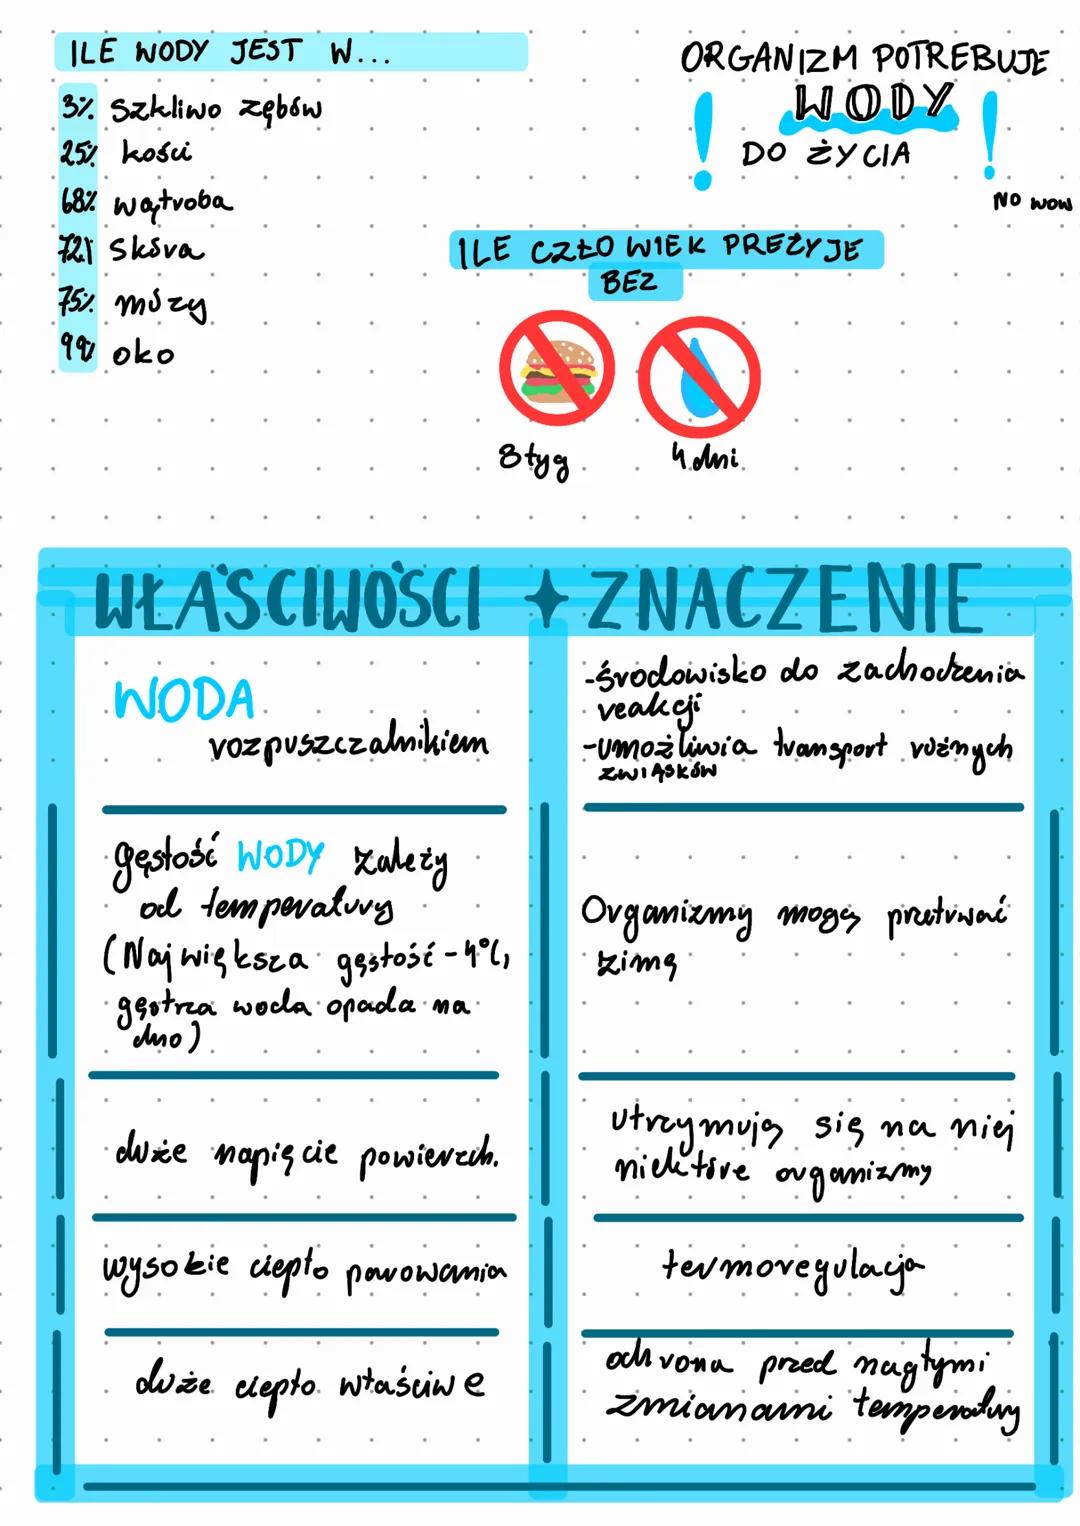 ILE WODY JEST W...
3% Szkliwo zębów
25% kości
68% wątroba
72% Skóra
75% mózy
99% oko
ORGANIZM POTREBUJE
WODY
DO ŻYCIA
! !
NO WOW
ILE CZŁOWIEK PREŻYJE
BEZ
8 tyg
4 dni
WŁAŚCIWOŚCI + ZNACZENIE
WODA
rozpuszczalnikiem
-środowisko do zachodzenia
reakcji
-umożliwia transport różnych
ZWIĄSKÓW
gęstość WODY zależy
od temperatury
(Największa gęstość - 4°C,
gęstrza woda opada na
dno)
Organizmy mogą przetrwać
zimę
duże napięcie powierzch.
utrzymują się na niej
niektóre organizmy
wysokie ciepło parowania
termoregulacja
duże ciepło właściwe
ochrona przed nagłymi
zmianami temperatury